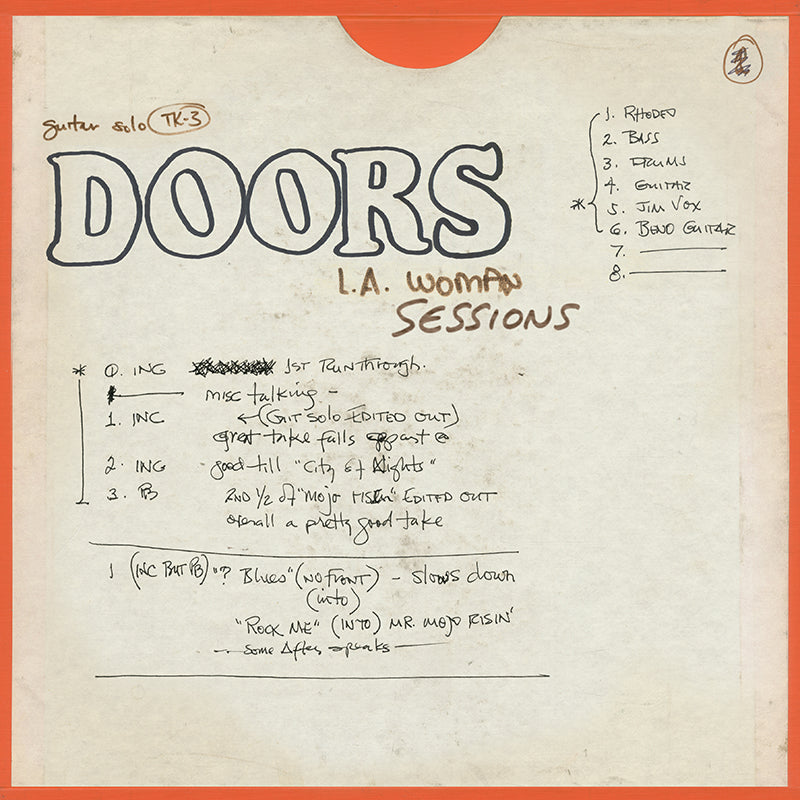 guitar solo TK-3
DOORS
L.A. WOMAN
SESSIONS
1. RHODES
2. BASS
3. DRUMS
4. GUITAR
* 5. JIM VOX
6. BEND GUITAR
7.
8.
* 0. INC 1ST RUNTHROUGH.
MISC talking -
1. INC ← (GIT SOLO EDITED OUT)
great take falls appast @
2. INC good till "City of Nights"
3. PB 2ND 1/2 of "MOJO RISIN" EDITED OUT
overall a pretty good take
1 (INC BUT PB) "? Blues" (NO FRONT) - slows down
(into)
"ROCK ME" (INTO) MR. MOJO RISIN'
- some After speaks -